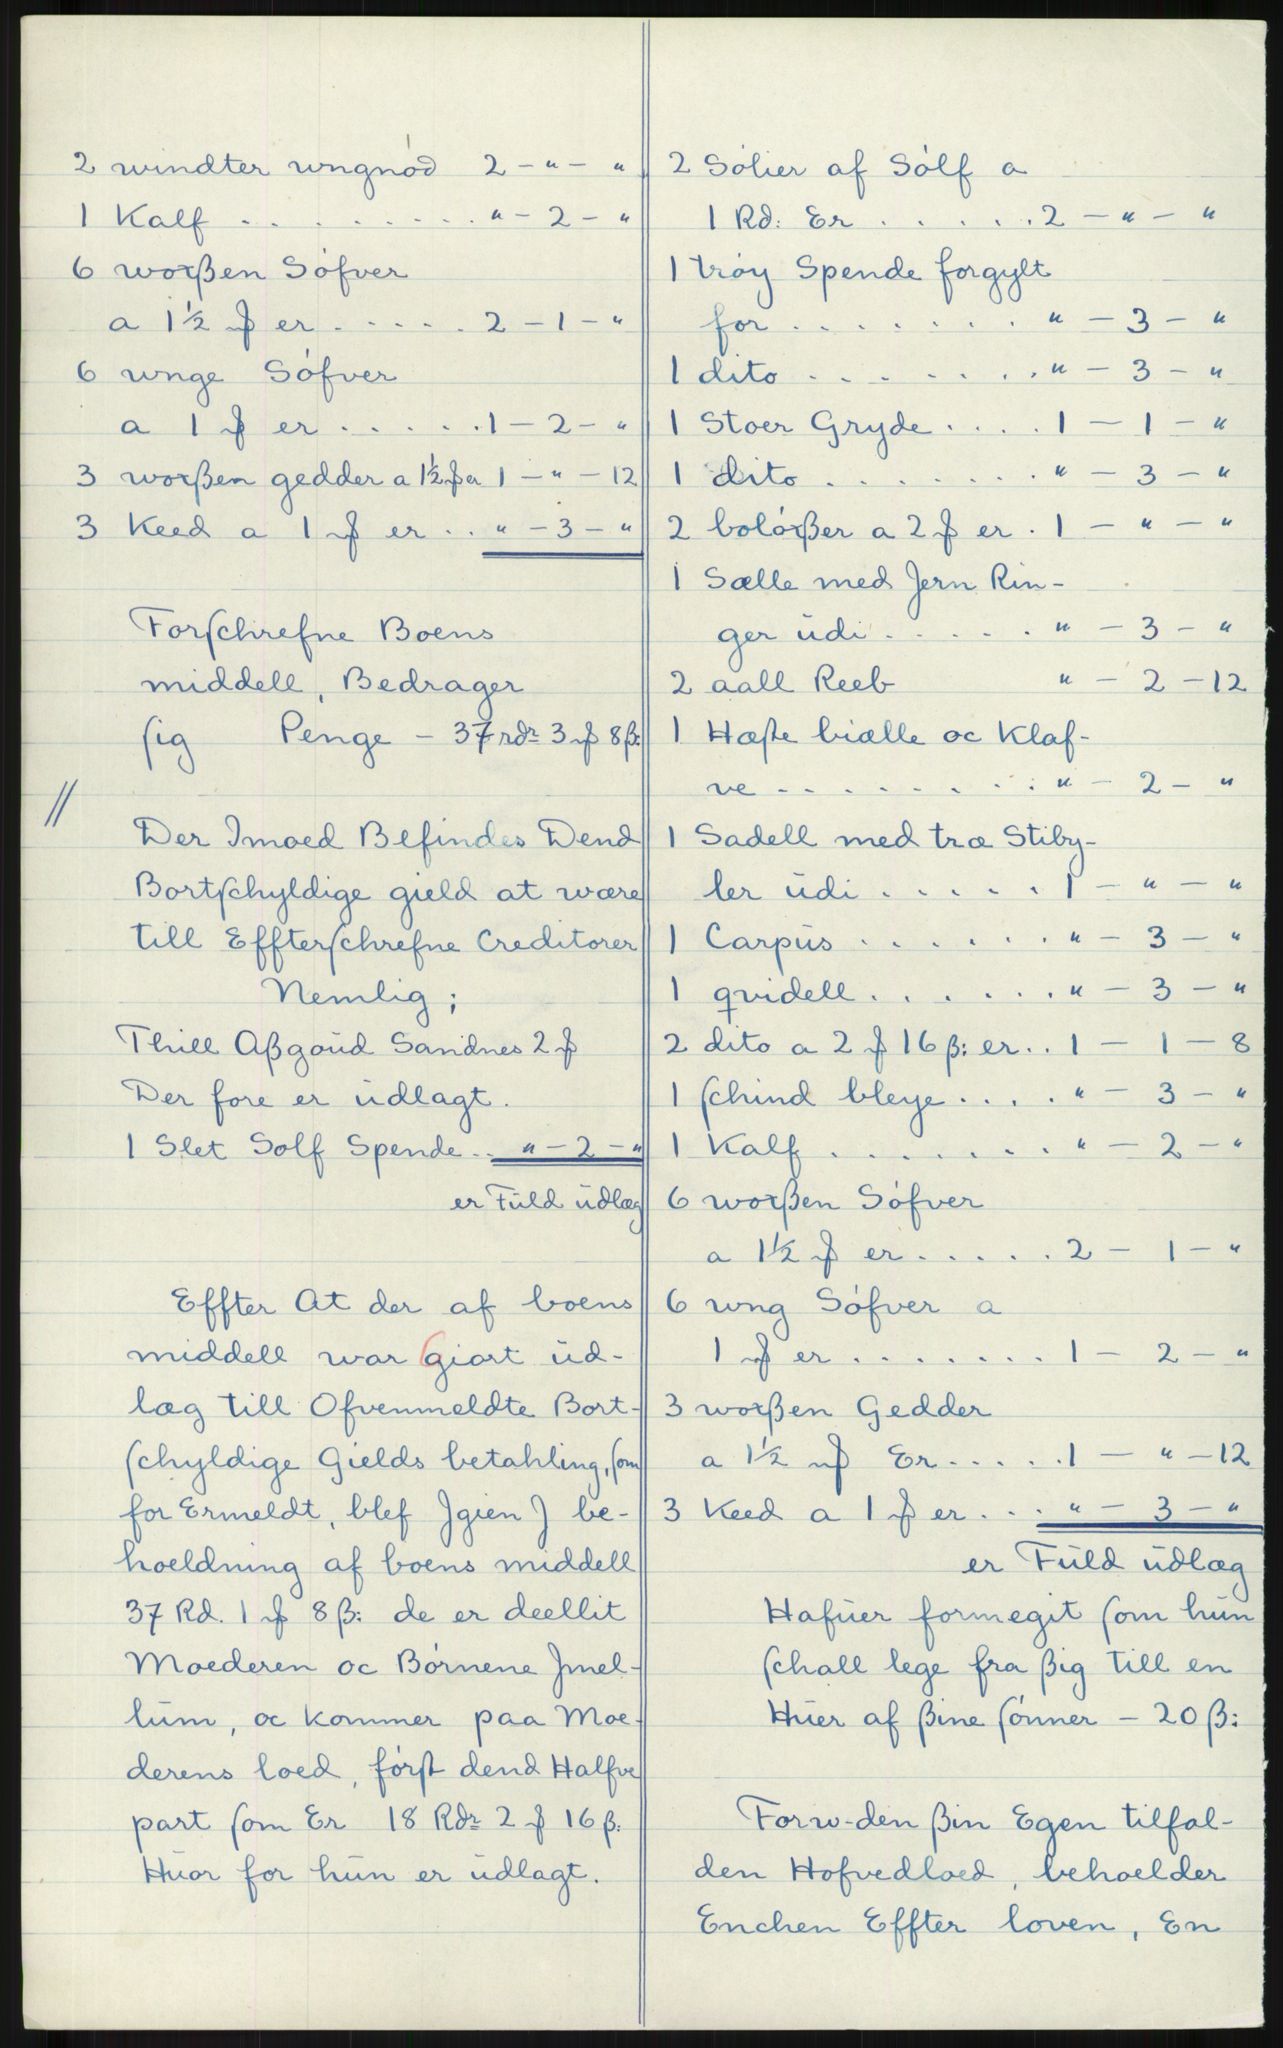 2 windter ungnód 2 - " - "
1 Kalf . . . . . . . . . " - 2 - "
6 woxßen Sófver
a 1½ ₰ er . . . . . 2 - 1 - "
6 unge Sófver
a 1 ₰ er . . . . . 1 - 2 - "
3 woxßen gedder a 1½ ₰ er 1 - " - 12
3 Keed a 1 ₰ er . . " - 3 - "
Forſchrefne Boens
middell, Bedrager
ſig Penge - 37 rdr 3 ₰ 8 β:
//
Der Imoed Befindes Dend
Bortſchyldige gield at wære
till Effterſchrefne Creditorer
Nemlig ;
Thill Aßgoud Sandnes 2 ₰
Der fore er udlagt.
1 Slet Solf Spende . . " - 2 - "
er Fuld udlæg
Effter At der af boens
middell war giort ud-
læg till Ofvenmeldte Bort-
ſchyldige Gields betahling, ſom
for Ermeldt, blef Jgien J be-
hoeldning af boens middell
37 Rd. 1 ₰ 8 β: de er deellit
Moederen oc Bórnene Jmel-
lum, oc kommer paa Moe-
derens loed, fórſt dend Halfve
part ſom Er 18 Rdr 2 ₰ 16 β:
Huor for hun er udlagt.
2 Sólier af Sólf a
1 Rd: Er . . . . . . 2 - " - "
1 tróy Spende forgylt
for . . . . . . . . " - 3 - "
1 dito . . . . . . . . " - 3 - "
1 Stoer Gryde . . . . 1 - 1 - "
1 dito . . . . . . . . " - 3 - "
2 bolóxßer a 2 ₰ er . 1 - " - "
1 Sælle med Jern Rin-
ger udi . . . . . . " - 3 - "
2 aall Reeb " - 2 - 12
1 Hæſte biælle oc Klaf-
ve . . . . . . . . . " - 2 - "
1 Sadell med træ Stiby-
ler udi . . . . . . 1 - " - "
1 Carpus . . . . . . . " - 3 - "
1 qvidell . . . . . . . " - 3 - "
2 dito a 2 ₰ 16 β: er . . 1 - 1 - 8
1 ſchind bleye . . . . " - 3 - "
1 Kalf . . . . . . . . " - 2 - "
6 woxßen Sófver
a 1½ ₰ er . . . . . 2 - 1 - "
6 ung Sófver a
1 ₰ er . . . . . . . . 1 - 2 - "
3 woxßen Gedder
a 1½ ₰ Er . . . . . 1 - " - 12
3 Keed a 1 ₰ er . . . " - 3 - "
er Fuld udlæg
Hafuer formegit ſom hun
ſchall lege fra ßig till en
Huer af ßine ſónner - 20 β:
Foru-den ßin Egen tilfal-
den Hofvedloed, behoelder
Enchen Effter loven, En